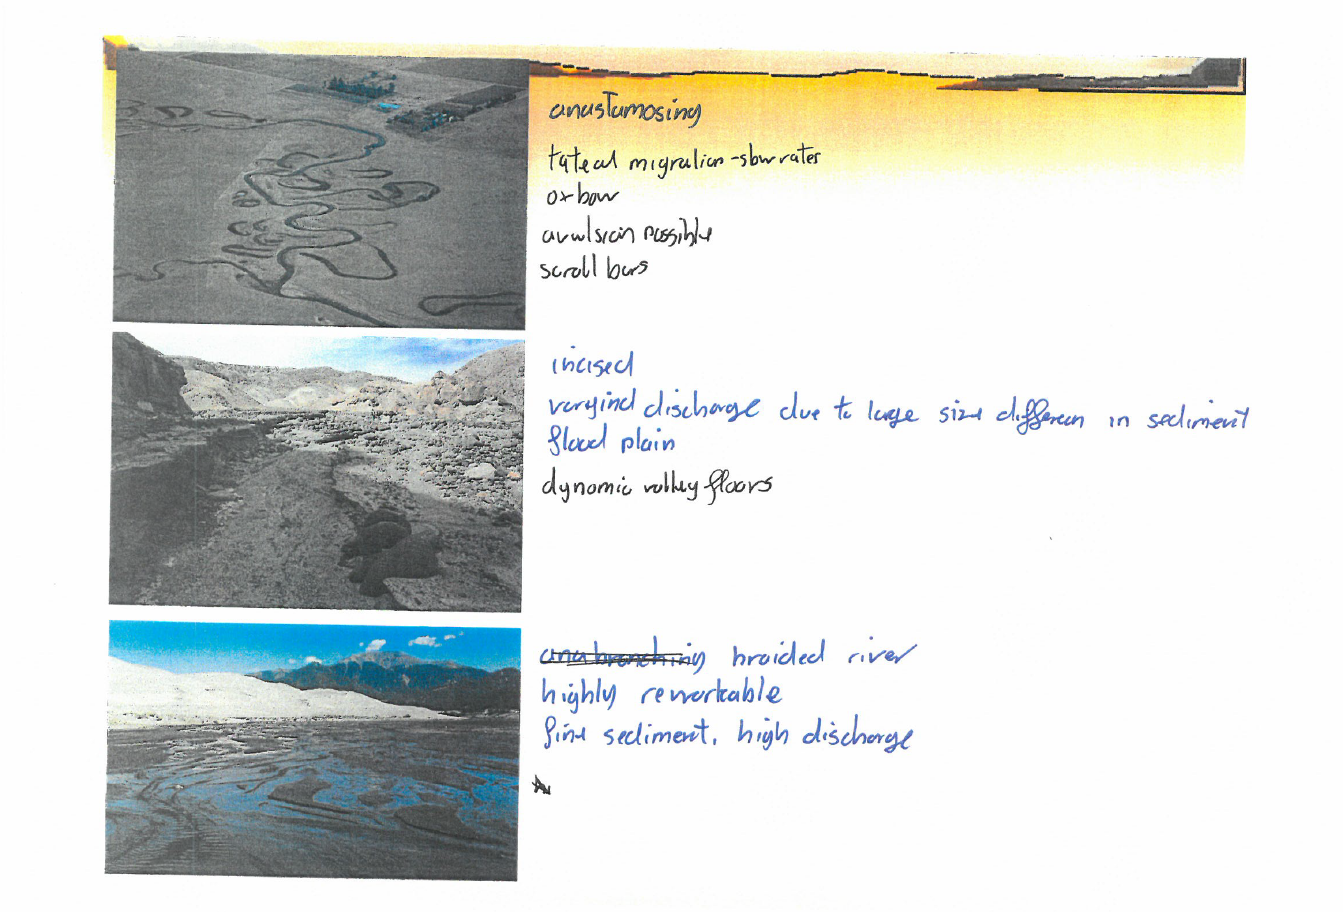 anastamosing
lateral migration - slow rates
oxbow
avulsion possible
scroll bars
incised
varyind discharge due to large size differen in sediment
flood plain
dynamic valley floors
anabranching braided river
highly reworkable
fine sediment, high discharge